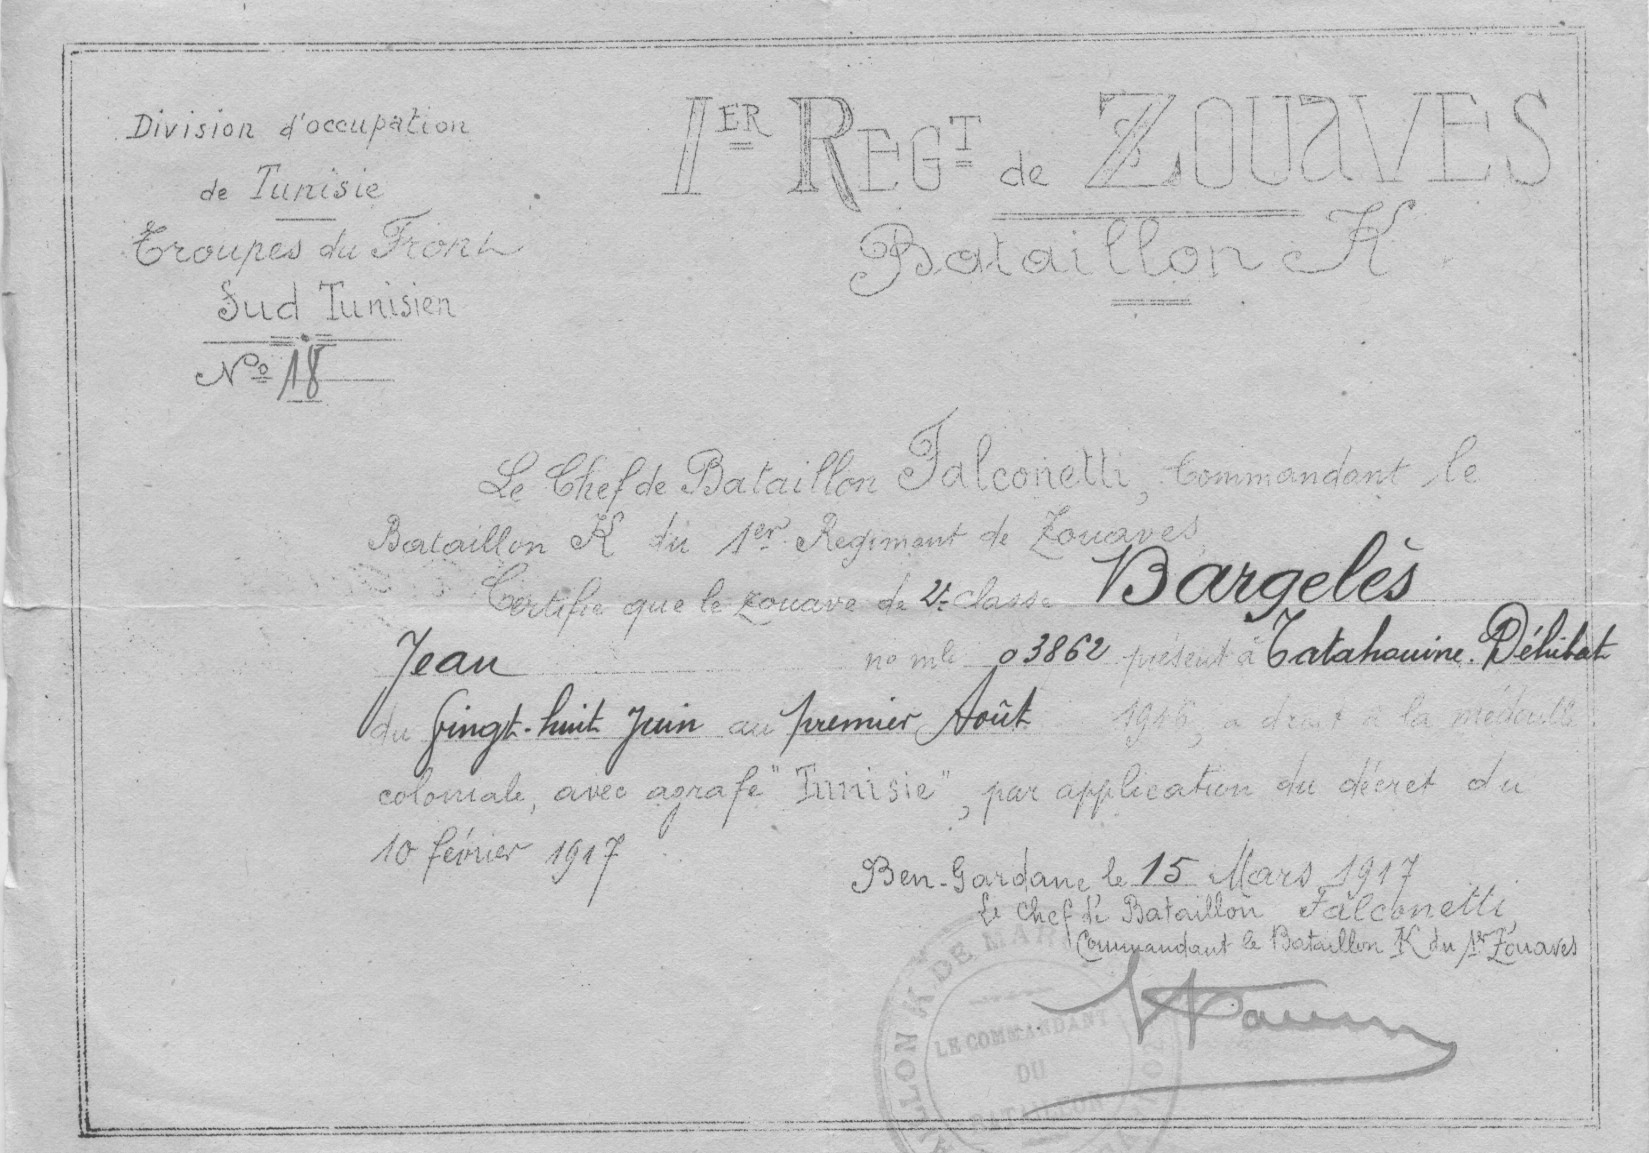 Division d'occupation
de Tunisie
Troupes du Front
Sud Tunisien
No 18
1ER REGT de ZOUAVES
Bataillon K
Le Chef de Bataillon Falconetti, Commandant le
Bataillon K du 1er Regiment de Zouaves
Certifie que le zouave de 2e classe Bargelès
Jean no mle 03862 présent à Tatahouine. Déhibat
du vingt-huit Juin au premier Août 1916, a droit à la médaille
coloniale, avec agrafe "Tunisie", par application du décret du
10 février 1917
Ben-Gardane le 15 Mars 1917
Le Chef de Bataillon Falconetti,
Commandant le Bataillon K du 1er Zouaves
LE COMMANDANT
DU
BATAILLON